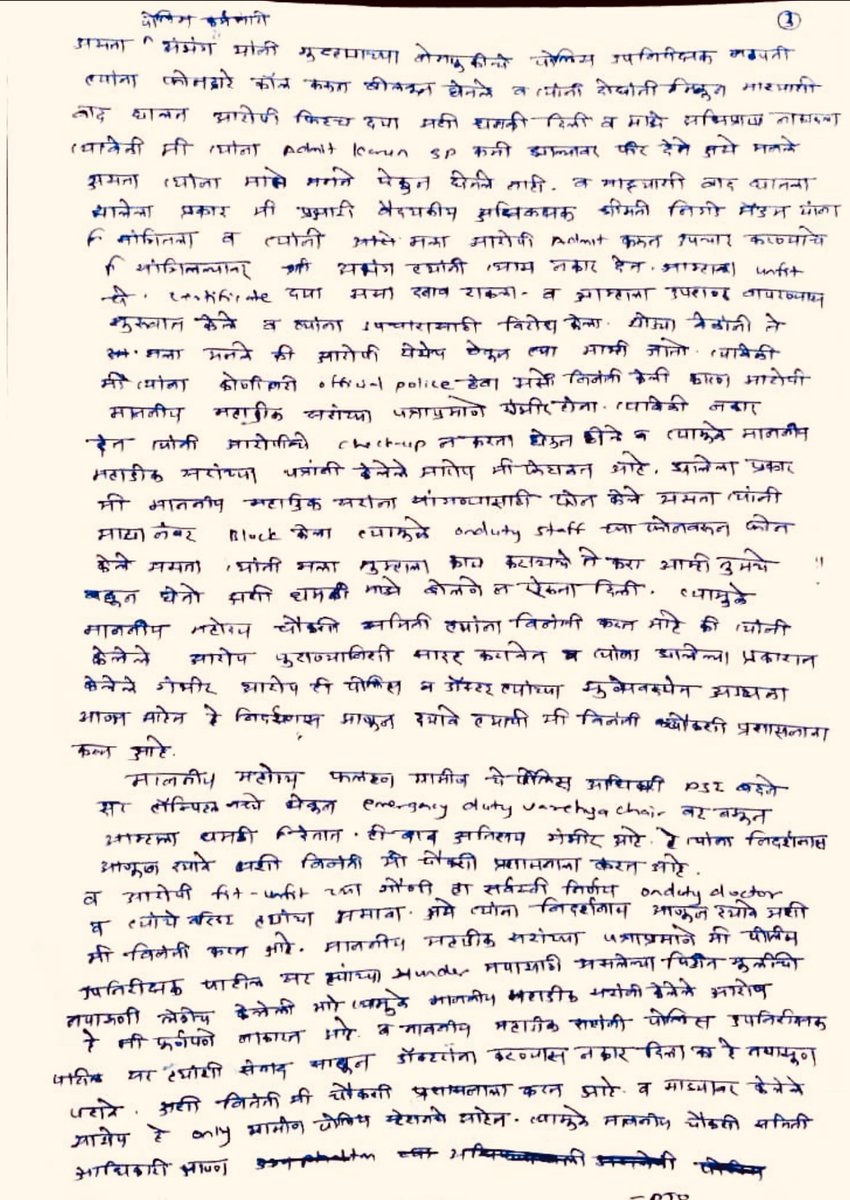 ③
पोलिस कर्मचारी
असता अभंग यांनी गुन्ह्याच्या पोलिस उपनिरीक्षक बदने
त्यांना फोनद्वारे कॉल करुन बोलवून घेतले व त्यांनी दोघांनी मिळून माझ्याशी
वाद घालत आरोपी फिटच द्या अशी धमकी दिली व माझे
त्यावेळी मी त्यांना Admit करुन BP कमी झाल्यावर फिट देते असे म्हणले
असता त्यांनी माझे म्हणणे ऐकून घेतले नाही. व माझ्याशी वाद घातला
झालेला प्रकार मी प्रभारी वैद्यकीय अधिक्षक श्रीमती मॅडम यांना
सांगितला व त्यांनी मला आरोपी Admit करुन उपचार करण्याचे
सांगितल्यानंतर श्री अभंग ह्यांनी त्यास नकार देत. आम्हाला unfit
चे. certificate द्या असा दबाव टाकला. व आम्हाला
सुरुवात केली व त्यांना उपचारासाठी विरोध केला. थोड्या वेळाने ते
मला म्हणले की आरोपी येथेच ठेवून त्या आम्ही जातो. त्यावेळी
मी त्यांना कोणीतरी official police ठेवा अशी विनंती केली कारण आरोपी
माननीय महाडीक सरांच्या पत्राप्रमाणे गंभीर होता. त्यावेळी नकार
देत त्यांनी आरोपीचे check-up न करता घेऊन गेले व त्यामुळे माननीय
महाडीक सरांच्या पत्रांनी केलेले आरोप मी फेटाळत आहे. झालेला प्रकार
मी माननीय महाडिक सरांना सांगण्यासाठी फोन केले असता त्यांनी
माझा नंबर Block केला त्यामुळे onduty staff च्या फोनवरुन फोन
केले असता त्यांनी मला तुम्हाला काय करायचे ते करा आम्ही तुमचे
बघून घेतो अशी धमकी माझे बोलणे न ऐकता दिली. त्यामुळे
माननीय महोदय चौकशी समिती ह्यांना विनंती करत आहे की त्यांनी
केलेले आरोप पुराव्यानिशी सादर करावेत व त्यांना झालेल्या प्रकारात
केलेले गंभीर आरोप ही पोलिस व डॉक्टर ह्यांच्या
आणत आहेत हे निदर्शनास आणून द्यावे ह्यासाठी मी विनंती चौकशी प्रशासनाला
करत आहे.
माननीय महोदय फलटण ग्रामीण चे पोलिस अधिकारी PSI बदने
सर हॉस्पिटल मध्ये येऊन emergency duty varchya chair वर बसून
आम्हाला धमकी देतात. ही बाब अतिशय गंभीर आहे. हे त्यांना निदर्शनास
आणून द्यावे अशी विनंती मी चौकशी प्रशासनाला करत आहे.
व आरोपी fit-unfit च्या नोंदी हा सर्वस्वी निर्णय onduty doctor
व त्यांचे वरिष्ठ ह्यांचा असावा. असे त्यांना निदर्शनास आणून द्यावे अशी
मी विनंती करत आहे. माननीय महाडीक सरांच्या पत्राप्रमाणे मी पोलीस
उपनिरीक्षक पाटील सर ह्यांच्या under तपासासाठी असलेल्या पिडीत मुलीची
तपासणी लेटीच केलेली आहे त्यामुळे माननीय महाडीक सरांनी केलेले आरोप
हे मी पूर्णपणे नाकारत आहे. व माननीय महाडीक सरांनी पोलिस उपनिरीक्षक
पाटील सर ह्यांशी संवाद साधून डॉक्टरांना करण्यास नकार दिला का हे तपासून
पहावे. अशी विनंती मी चौकशी प्रशासनाला करत आहे. व माझ्यावर केलेले
आरोप हे only ग्रामीण पोलिस आहेत. त्यामुळे माननीय चौकशी समिती
अधिकारी आपण
-PTO